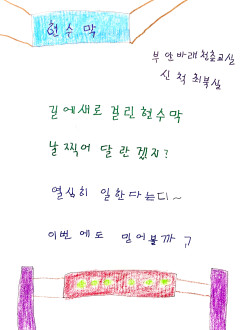 현수막
부안바래청춘교실
신척 최복실
길에새로 걸린현수막
날 찍어 달란겠지?
열심히 일한다는디~
이번에도 믿어볼까ㅋ